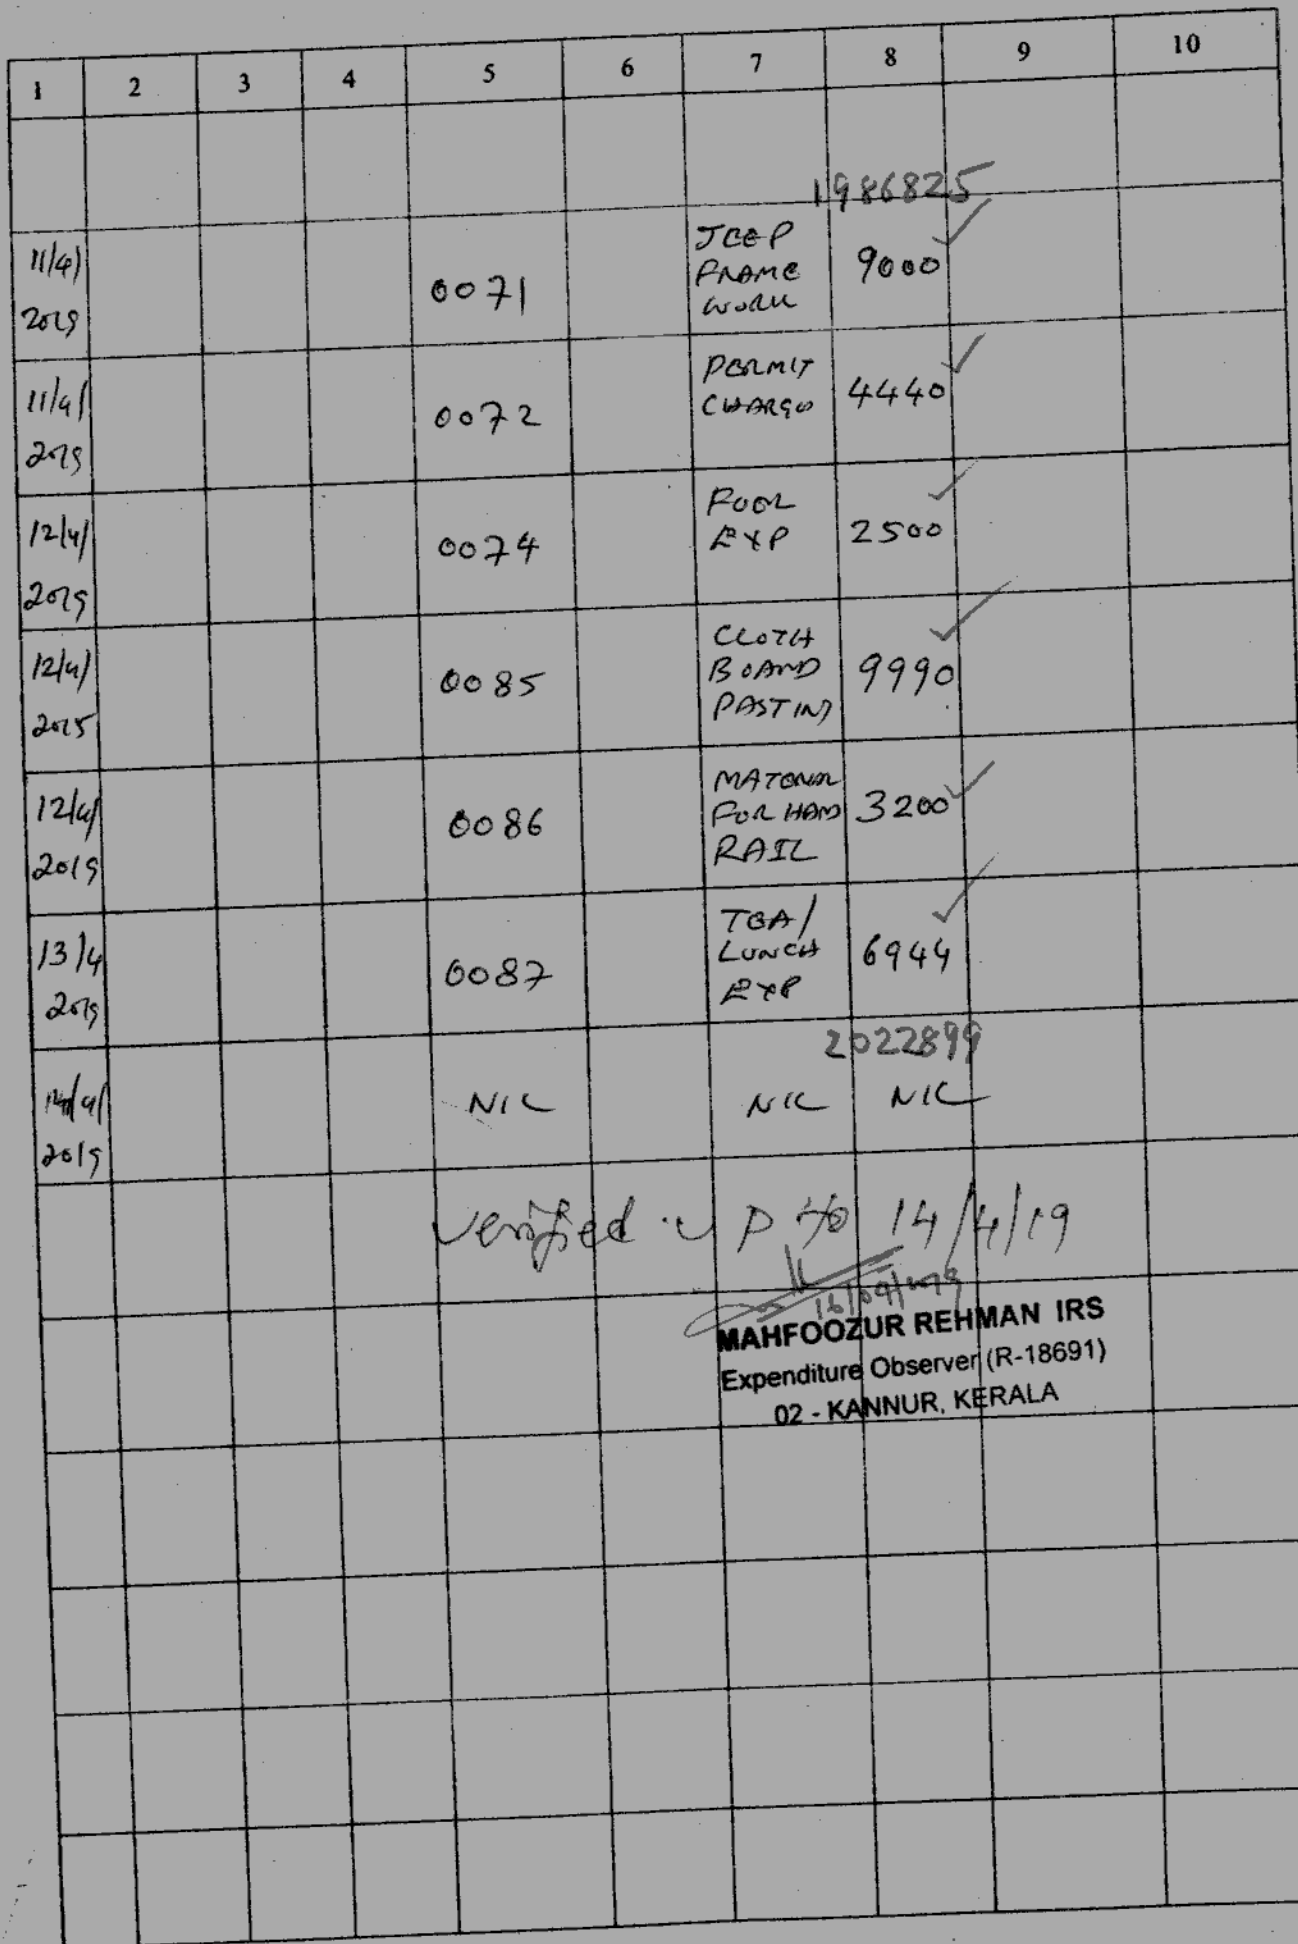 1 2 3 4 5 6 7 8 9 10
1986825
11/4/ 2019 0071 JEEP FRAME WORK 9000
11/4/ 2019 0072 PERMIT CHARGE 4440
12/4/ 2019 0074 FUEL EXP 2500
12/4/ 2019 0085 CLOTH BOARD PASTING 9990
12/4/ 2019 0086 MATERIAL FOR HAND RAIL 3200
13/4 2019 0087 TEA/ LUNCH EXP 6944
2022899
14/4/ 2019 NIL NIL NIL
Verified up to 14/4/19
16/04/2019
MAHFOOZUR REHMAN IRS
Expenditure Observer (R-18691)
02 - KANNUR, KERALA